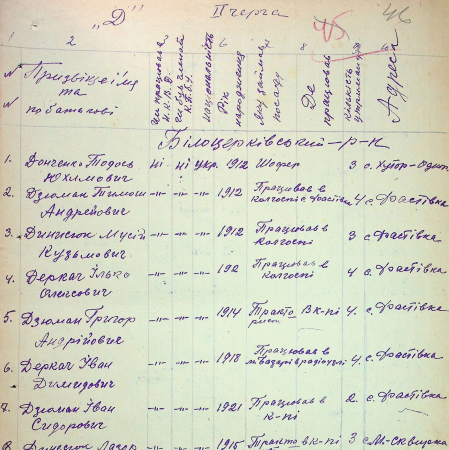 „Д" II черга 45 46
1 2 6 8
№ Призвіще ім'я та по батькові
національність
Рік народження
Яку займав посаду
Де працював
кількість утриманців
Адреса
Білоцерківський р-н
1. Донченко Тодось Юхимович ні ні укр. 1912 Шофер 3 с. Хутор-
2. Дзюман Тимош Андрійович -"- -"- -"- 1912 Працював в колгоспі с Фастівка 4 с. Фастівка
3. Динисюк Мусій Кузьмович -"- -"- -"- 1912 Працював в колгоспі 3 с Фастівка
4. Деркач Ілько Олексович -"- -"- -"- 192 Працював в колгоспі 4 с. Фастівка
5. Дзюман Григор Андрійович -"- -"- -"- 1914 Тракторист в к-пі 4. с. Фастівка
6. Деркач Іван Димидович -"- -"- -"- 1918 Працював в 4. с. Фастівка
7. Дзюман Іван Сидорович -"- -"- 1921 Працював в к-пі 2. с. Фастівка
8. Динисюк Лазор -"- -"- -"- 1915 Тракто в к-пі 3 с М-Сквирка